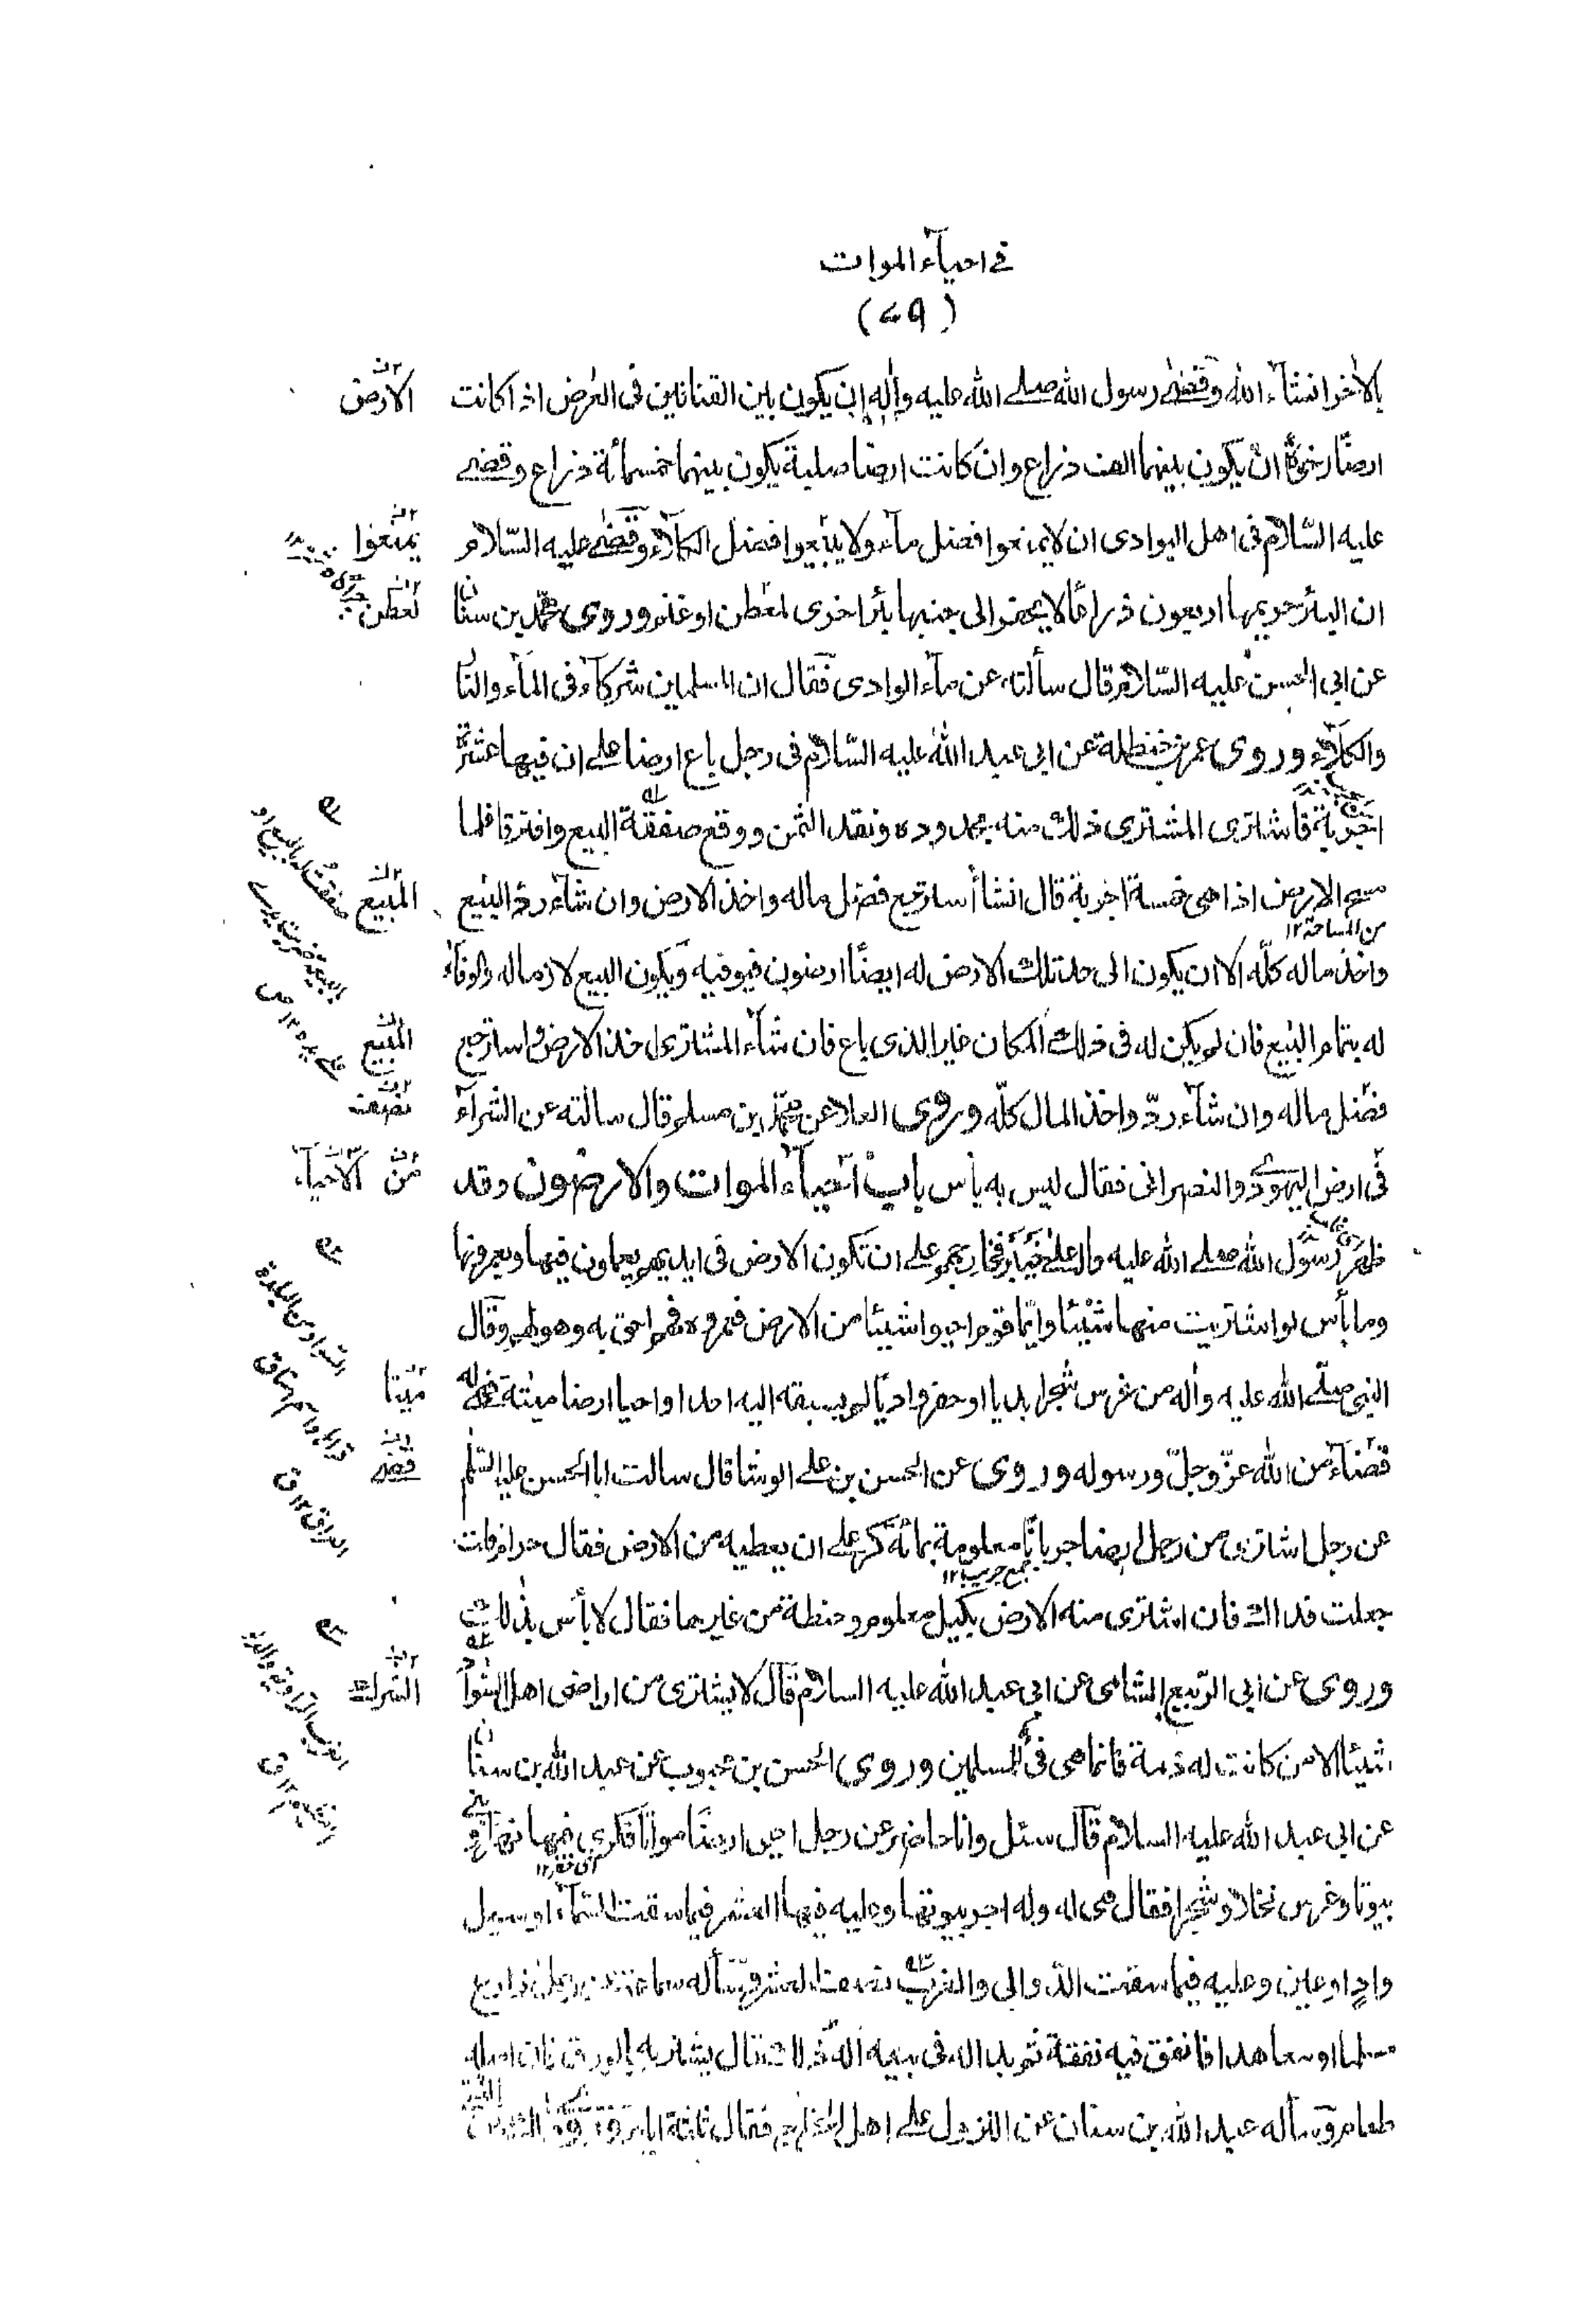 في احيآء الموات
(٧٩)
بالاخر انشآء الله وقضى رسول الله صلى الله عليه وآله ان يكون بين القناتين فى العرض اذا كانت
الارض
ارضًا رخوة ان يكون بينهما الف ذراع وان كانت ارضا صلبة يكون بينهما خمسمائة ذراع وقضى
عليه السّلام فى اهل البوادى ان لا يمنعوا فضل مآء ولا يبيعوا فضل الكلآء وقضى عليه السّلام
يمنعوا
ان البئر حريمها اربعون ذراعًا لا يحفر الى جنبها بئر اخرى لمعطن او غنم وروى محمّد بن سنان
لعطن
عن ابى الحسن عليه السّلام قال سألته عن مآء الوادى فقال ان المسلمين شركآء فى المآء والنار
والكلآء وروى عمر بن حنظلة عن ابى عبد الله عليه السّلام فى رجل باع ارضا على ان فيها عشرة
اجربة فاشترى المشترى ذلك منه بحدوده ونقد الثمن ووقع صفقة البيع وافترقا فلما
مسح الارض اذا هى خمسة اجربة قال انشآ استرجع فضل ماله واخذ الارض وان شآء ردّ البيع
المبيع
من المساحة ١٢
واخذ ماله كلّه الا ان يكون الى حد تلك الارض له ايضًا ارضون فيوفيه ويكون البيع لازما له والوفآء
له بتمام البيع فان لم يكن له فى ذلك المكان غير الذى باع فان شآء المشترى اخذ الارض واسترجع
المبيع
فضل ماله وان شآء ردّ واخذ المال كلّه وروى العلا عن محمّد بن مسلم قال سالته عن الشرآء
فى ارض اليهود والنصرانى فقال ليس به بأس باب احيآء الموات والارضون وقد
من الاحيآء
ظهر رسول الله صلى الله عليه وآله على خيبر فخارجهم على ان تكون الارض فى ايديهم يعملون فيها ويعمرونها
وما بأس لو اشتريت منها شيئا وايّما قوم احيوا شيئا من الارض فعمروه فهم احق به وهو لهم وقال
النبى صلّى الله عليه وآله من غرس شجرا بديا او حفر واديًا لم يسبقه اليه احد او احيا ارضا ميتة فهى له
ميتا
قضآء من الله عزّ وجلّ ورسوله وروى عن الحسن بن على الوشا قال سالت ابا الحسن عليه السّلم
قضى
عن رجل اشترى من رجل ارضا جربانًا معلومة بمائة كر على ان يعطيه من الارض فقال حرام فقلت
جمع جريب ١٢
جعلت فداك فان اشترى منه الارض بكيل معلوم وحنطة من غيرها فقال لا بأس بذلك
وروى عن ابى الرّبيع الشامى عن ابى عبد الله عليه السلام قال لا يشترى من اراضى اهل السواد
شيئا الا من كانت له ذمة فانما هى فىء للمسلمين وروى الحسن بن محبوب عن عبد الله بن سنان
عن ابى عبد الله عليه السلام قال سئل وانا حاضر عن رجل احيى ارضًا مواتا فكرى فيها نهرا وبنى
اى حفر ١٢
بيوتا وغرس نخلا وشجرا فقال هى له وله اجر بيوتها وعليه فيها العشر فيما سقت السّمآء او سيل
وادٍ او عين وعليه فيما سقت الدّوالى والغرب نصف العشر وسأله سماعة عن رجل زارع
مسلما او معاهدا فانفق فيه نفقة ثم بدا له فى بيعه اله ذلك قال يشتريه بالورق فان اصله
طعام وسأله عبد الله بن سنان عن النزول على اهل الخراج فقال ثلثة ايام